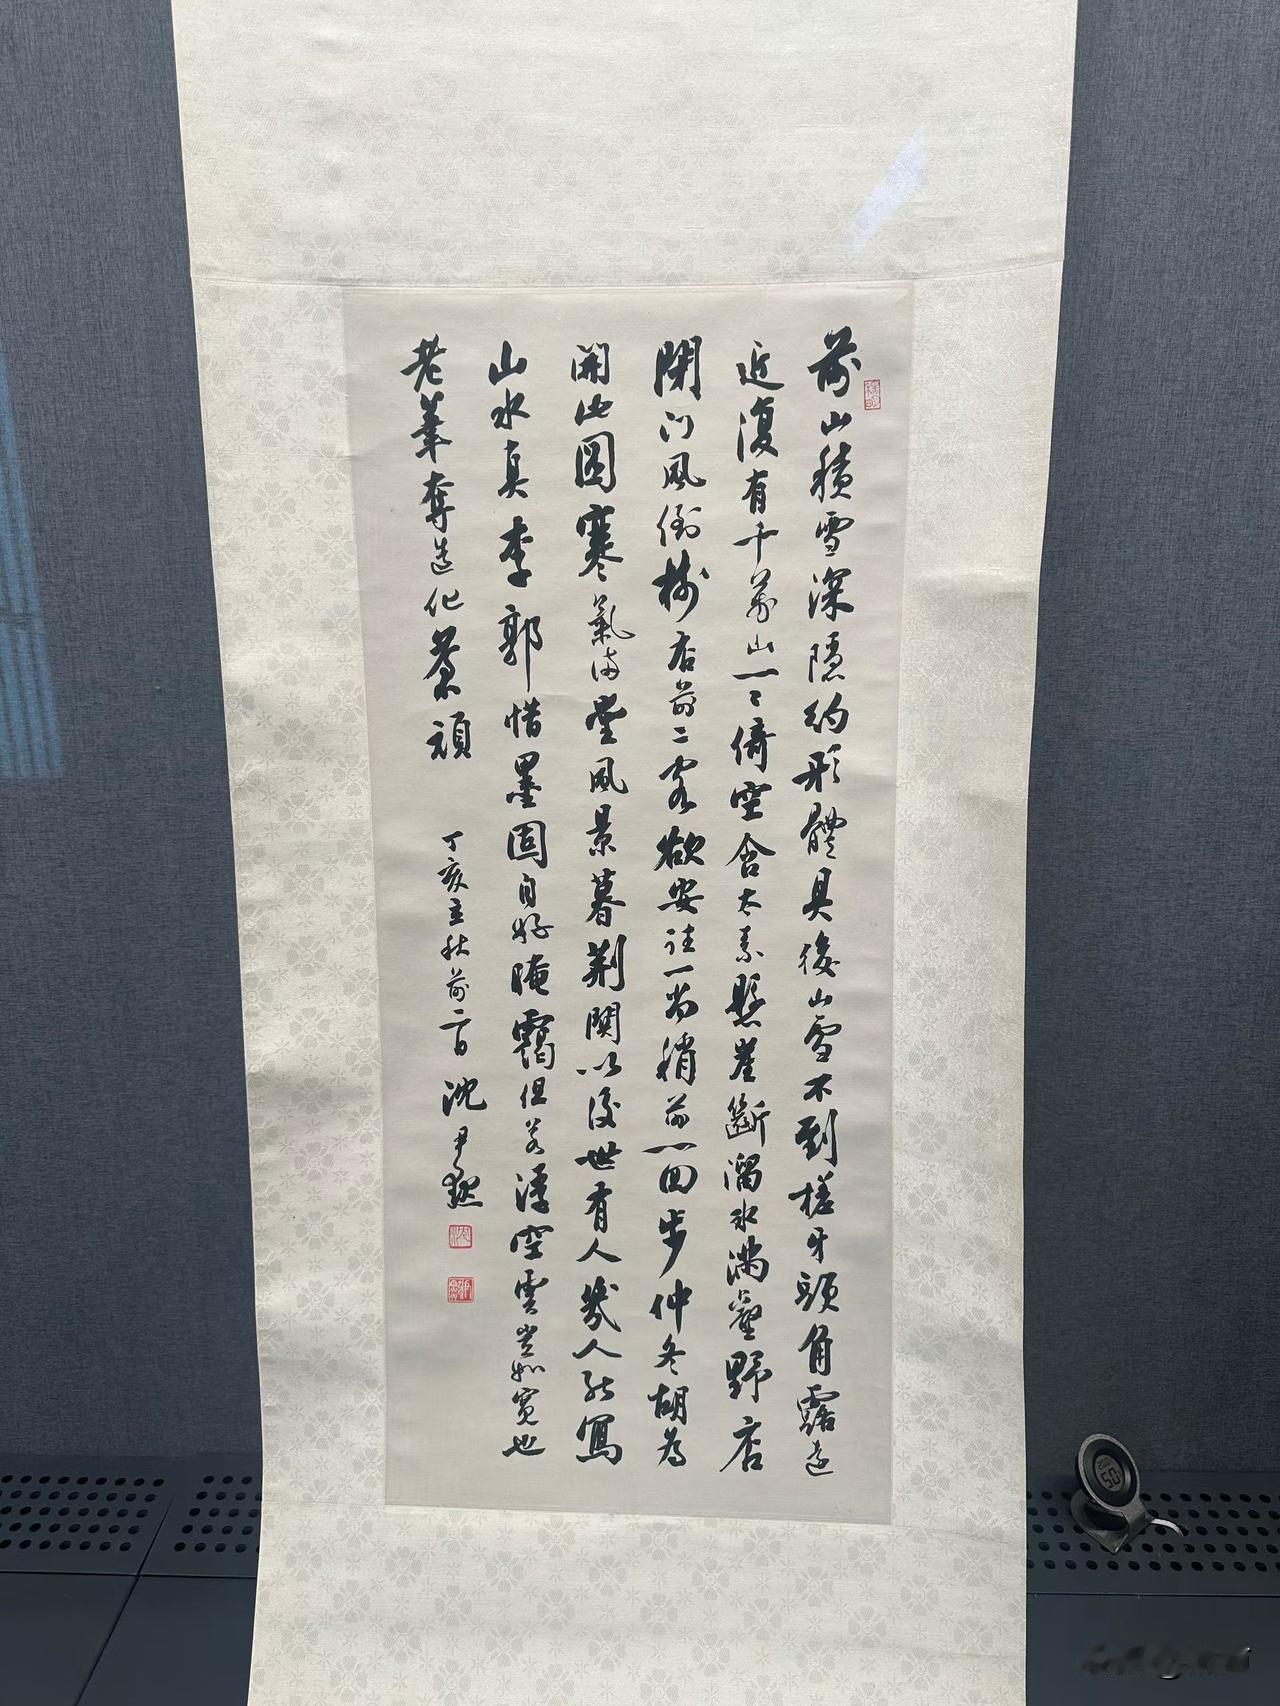 前山積雪深隱約形體具後山雪不到槎牙頭角露遠
近復有千萬山一〻倚空含太素懸崖斷溜冰滿壑野店
閉门風倒樹店前二客欲安往一尚稍前一回步仲冬胡為
開此圖寒氣滿堂風景暮荆關以後世有人幾人能寫
山水真李郭惜墨固自好晻靄但若浮空雲豈如寬也
老筆奪造化蒼頑
丁亥立秋前二日 沈尹默
沈
50